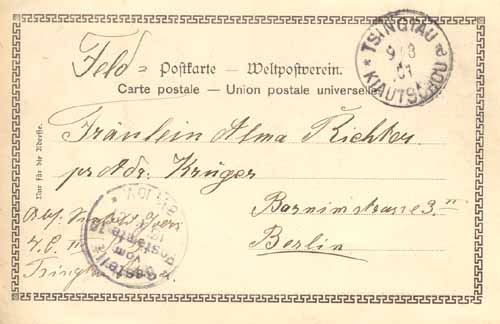 Feld= Postkarte — Weltpostverein.
Carte postale — Union postale universelle
* TSINGTAU *
9/3
01
KIAUTSCHOU
Nur für die Adresse.
Fräulein Alma Richter
pr. Adr. Krüger
Barnimstrasse 3
Berlin
Abs.
Tsingtau
Bestellt
vom
Postamte